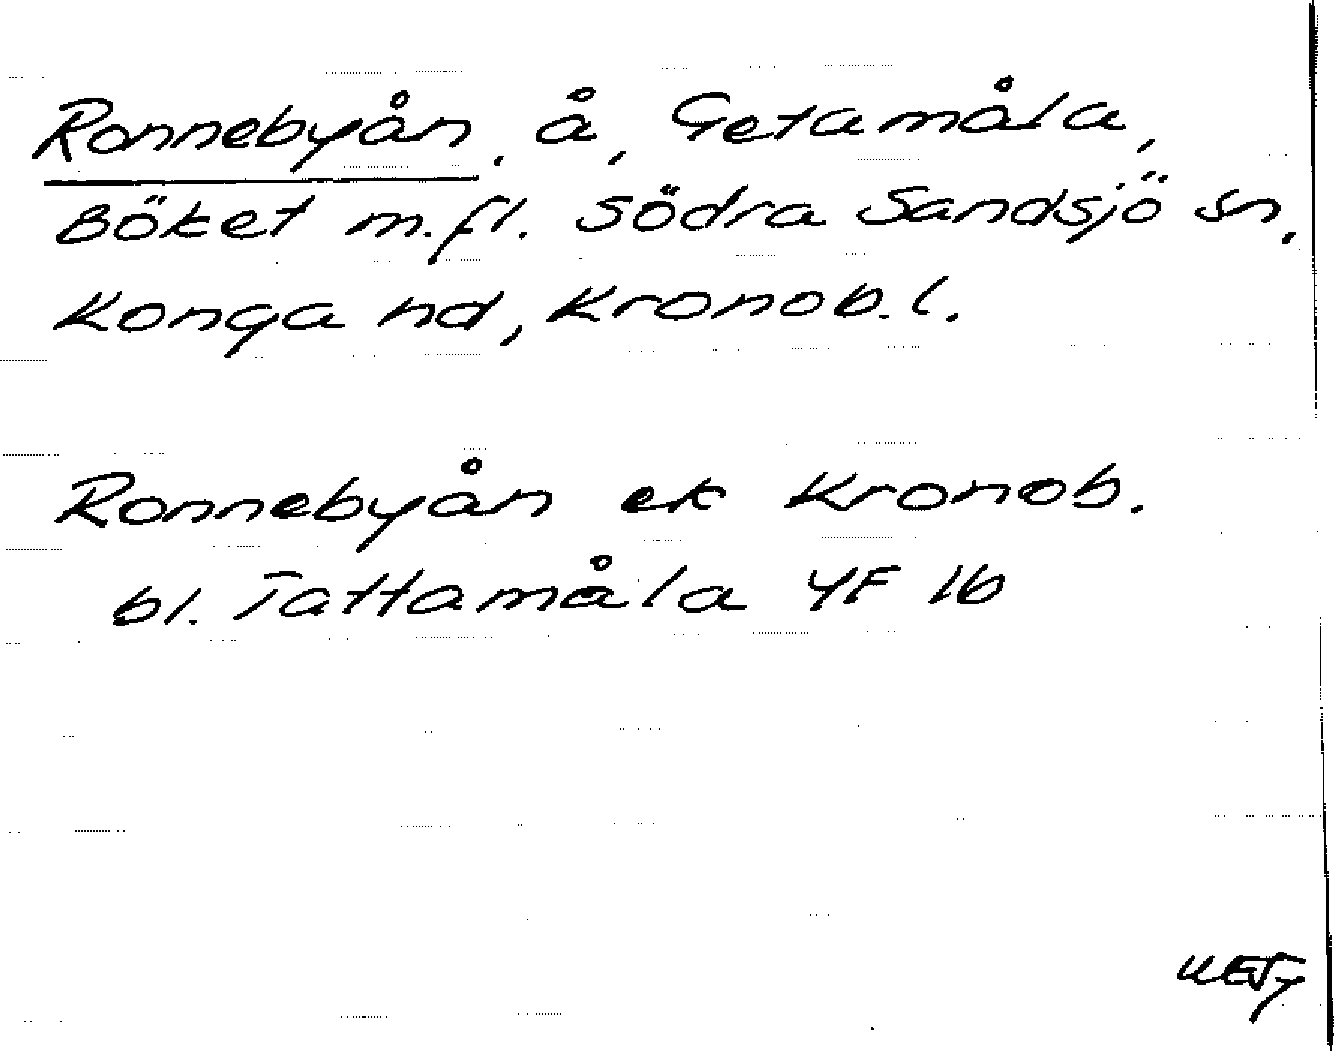 Ronnebyån, å, Getamåla,
Böket m.fl. Södra Sandsjö sn,
Konga hd, Kronob. l.
Ronnebyån ek Kronob.
bl. Tattamåla 4F 1b